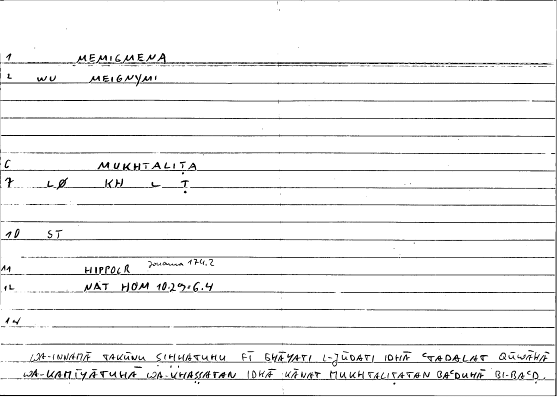 1 MEMIGMENA
2 WU MEIGNYMI
6 MUKHTALIṬA
7 LØ KH L Ṭ
10 ST
11 HIPPOCR
12 NAT HOM 10.29:6.4
14
WA-INNAMĀ TAKŪNU ṢIḤḤATUHU FĪ GHĀYATI L-JŪDATI IDHĀ ʿTADALAT QŪWĀHĀ
WA-KAMĪYĀTUHĀ WA-KHĀṢṢATAN IDHĀ KĀNAT MUKHTALIṬATAN BAʿḌUHĀ BI-BAʿḌ.